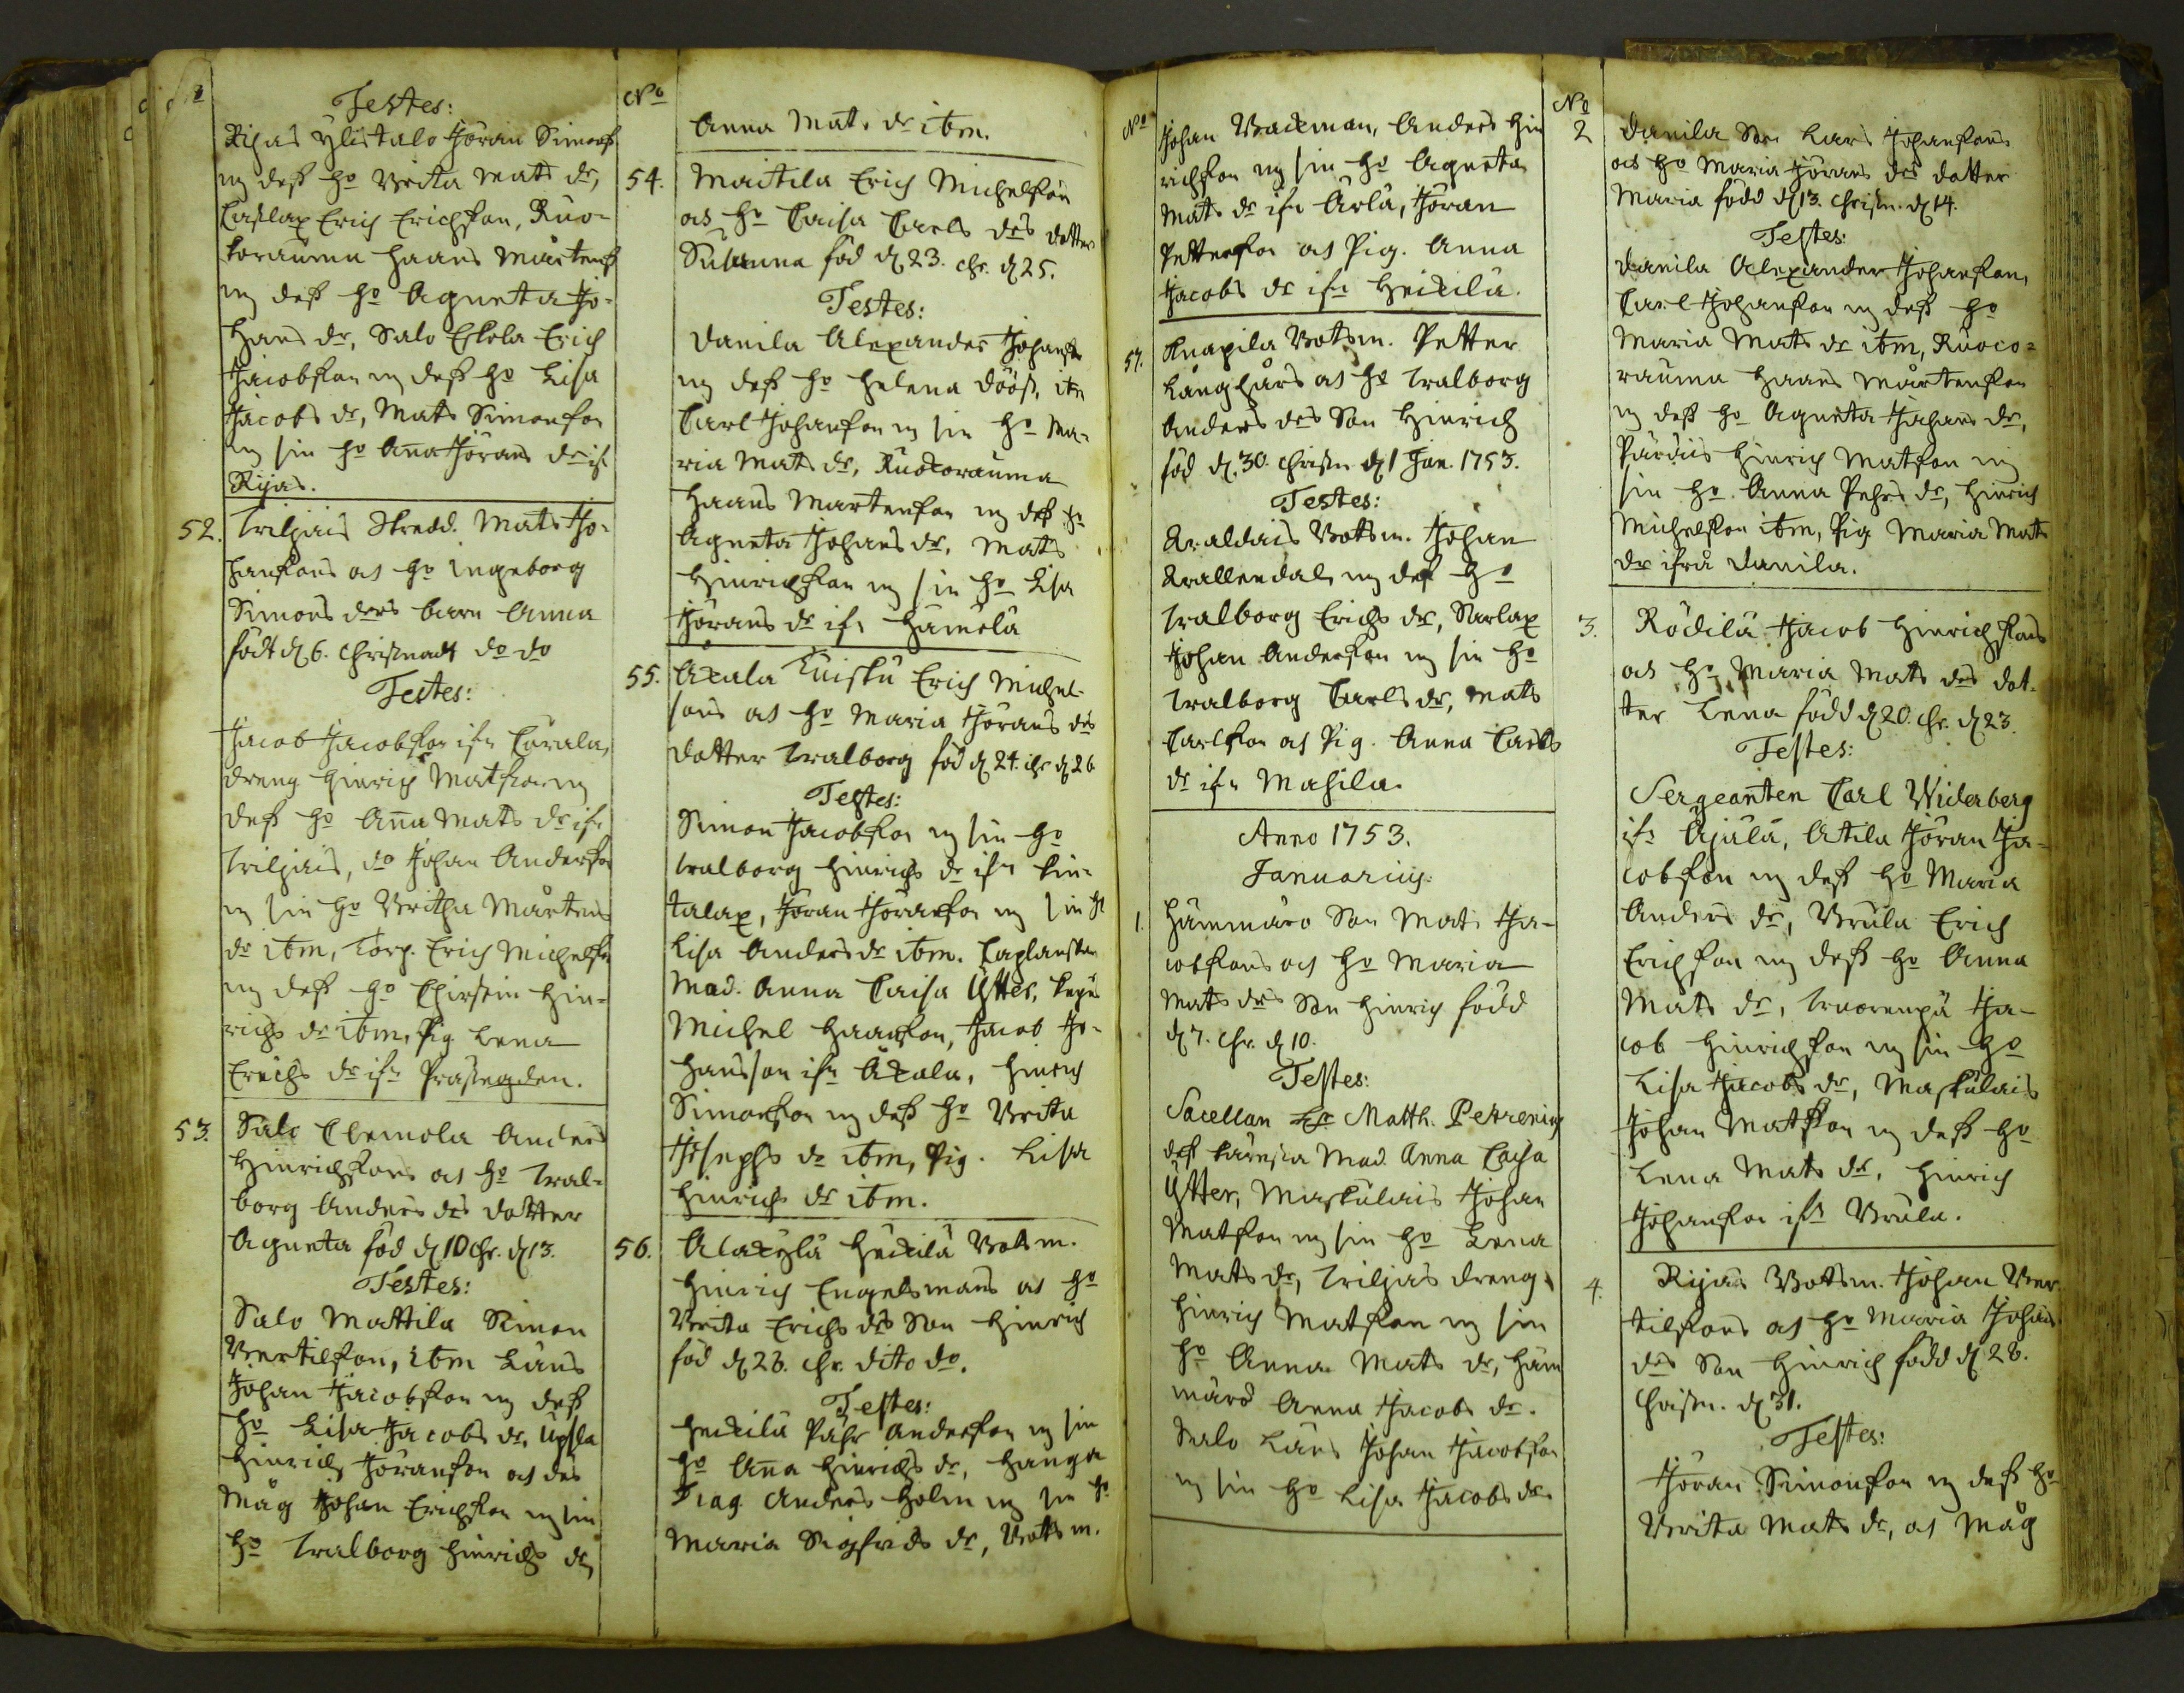 No
Testes:
Rijas Ylistalo Jöran Simons
m dess ho Brita Mats dr,
Caslax Erich Erichson, Ruo-
korauma Hans Mårtens
m dess ho Agneta Jo-
hans dr, Salo Eskola Erich
Jacobson m dess ho Lisa
Jacobs dr, Mats Simonson
m sin ho Anna Jörans dr if.
Rijas.
52. Wiljais Skredd. Mats Jo-
hansons och ho Ingeborg
Simons drs barn Anna
födt d 6. Christnadt do do
Testes:
Jacob Jacobson ifn Carala,
dreng Hinrich Matson m
dess ho Anna Mats dr ifn
Wiljais, do Johan Anderson
m sin ho Britha Mårtens
dr ibm, Torp. Erich Michelson
m dess ho Chirstin Hin-
richs dr ibm, Pig. Lena
Erichs dr ifn Prästegden.
53. Salo Clemola Anders
Hinrichsons och ho Wal-
borg Anders drs dotter
Agneta föd d 10 Chr. d 13.
Testes:
Salo Mattila Simon
Bertilson, ibm Läns
Johan Jacobson m dess
ho Lisa Jacobs dr, Upsla
Hinrich Jöranson och des
Måg Johan Erichson m sin
ho Walborg Hinrichs dr
No
Anna Mats dr ibm.
54. Maitila Erich Michelson
och ho Caisa Carls drs dotter
Susanna föd d 23. chr. d 25.
Testes:
Danila Alexander Johanson
m dess ho Helena Dööss, ibm
Carl Johanson m sin ho Ma-
ria Mats dr, Ruokorauma
Hans Martenson m dess ho
Agneta Johans dr, Mats
Hinrichson m sin ho Lisa
Jörans dr ifn Hämälä
55. Äkälä Kuisku Erich Michel-
sons och ho Maria Jörans drs
dotter Walborg föd d 24. chr d 26
Testes:
Simon Jacobson m sin ho
Walborg Hinrichs dr ifn Kin-
talax, Jöran Jöranson m sin ho
Lisa Anders dr ibm. Caplanskan
Mad. Anna Caisa Ytter,
Michel Hanson, Jacob Jo-
hansson ifn Äkälä, Hinrich
Simonson m dess ho Brita
Josephs dr ibm, Pig. Lisa
Hinrichs dr ibm.
56. Alakylä Heikilä Botsm.
Hinrich Engelsmans och ho
Brita Erichs drs Son Hinrich
föd d 28. chr. dito do.
Testes:
Heikilä Påhr Anderson m sin
ho Anna Hinrichs dr, Hanga
Drag. Anders Holm m sin ho
Maria Sigfrids dr, Botsm.
No
Johan Backman, Anders Hin
richson m sin ho Agneta
Mats dr ifn Ärlä, Jöran
Petterson och Pig. Anna
Jacobs dr ifn Heikilä.
57. Knapila Botsm. Petter
Långhårs och ho Walborg
Anders drs Son Hinrich
föd d. 30. Christn. d 1 Jan. 1753.
Testes:
Kraldais Botsm. Johan
Krallendal m dess ho
Walborg Erichs dr, Sarlax
Johan Anderson m sin ho
Walborg Carls dr, Mats
Carlson och Pig. Anna Carls
dr ifn Mahila.
Anno 1753.
Januarius.
1. Hämmärö Son Mats Ja-
cobsons och ho Maria
Mats drs Son Hinrich född
d 7. chr. d 10.
Testes:
Sacellan Hr Matth. Petrenius
dess käresta Mad. Anna Caisa
Ytter, Maskulais Johan
Matson m sin ho Lena
Mats dr, Wiljais dreng
Hinrich Matson m sin
ho Anna Mats dr, Häm
märö Anna Jacobs dr.
Salo Läns Johan Jacobson
m sin ho Lisa Jacobs dr.
No
2 Danila Son Lars Johansons
och ho Maria Jörans drs dotter
Maria född d 13. Christn. d 14.
Testes:
Danila Alexander Johanson,
Carl Johanson m dess ho
Maria Mats dr ibm, Ruoco-
rauma Hans Mårtenson
m dess ho Agneta Johans dr,
Pärdus Hinrich Matson m
sin ho. Anna Pehrs dr, Hinrich
Michelson ibm, Pig Maria Mats
dr ifrå Danila.
3. Rödilä Jacob Hinrichsons
och ho Maria Mats drs dot-
ter Lena född d 20. chr. d 23.
Testes:
Sergeanten Carl Widerberg
ifn Äjälä, Atila Jöran Ja-
cobson m dess ho Maria
Anders dr, Brula Erich
Erichson m dess ho Anna
Mats dr, Ja-
cob Hinrichson m sin ho
Lisa Jacobs dr, Maskulais
Johan Matson m dess ho
Lena Mats dr, Hinrich
Johanson ifn Brula.
4. Rijas Botsm. Johan Ber
tilsons och ho Maria Johans
drs Son Hinrich född d 28.
Christn. d 31.
Testes:
Jöran Simonson m dess ho
Brita Mats dr, och Måg